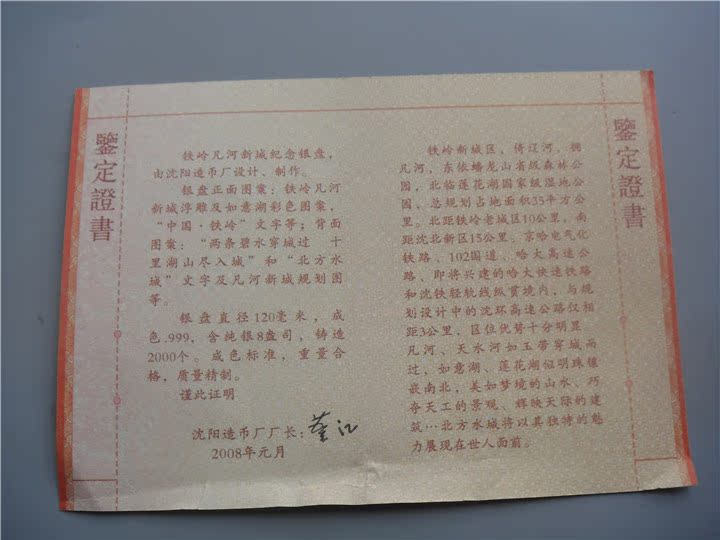 鑒定證書
铁岭凡河新城纪念银盘，
由沈阳造币厂设计、制作。
银盘正面图案：铁岭凡河
新城浮雕及如意湖彩色图案，
“中国·铁岭”文字等；背面
图案：“两条碧水穿城过 十
里湖山尽入城”和“北方水
城”文字及凡河新城规划图
等。
银盘直径120毫米，成
色.999，含纯银8盎司，铸造
2000个。成色标准，重量合
格，质量精制。
谨此证明
沈阳造币厂厂长：
2008年元月
铁岭新城区，倚辽河，拥
凡河，东依蟠龙山省级森林公
园，北临莲花湖国家级湿地公
园，总规划占地面积35平方公
里。北距铁岭老城区10公里，南
距沈北新区15公里。京哈电气化
铁路、102国道、哈大高速公
路、即将兴建的哈大快速铁路
和沈铁轻轨线纵贯境内，与规
划设计中的沈环高速公路仅相
距3公里，区位优势十分明显
凡河、天水河如玉带穿城而
过，如意湖、莲花湖似明珠镶
嵌南北，美如梦境的山水、巧
夺天工的景观、辉映天际的建
筑…北方水城将以其独特的魅
力展现在世人面前。
鑒定證書